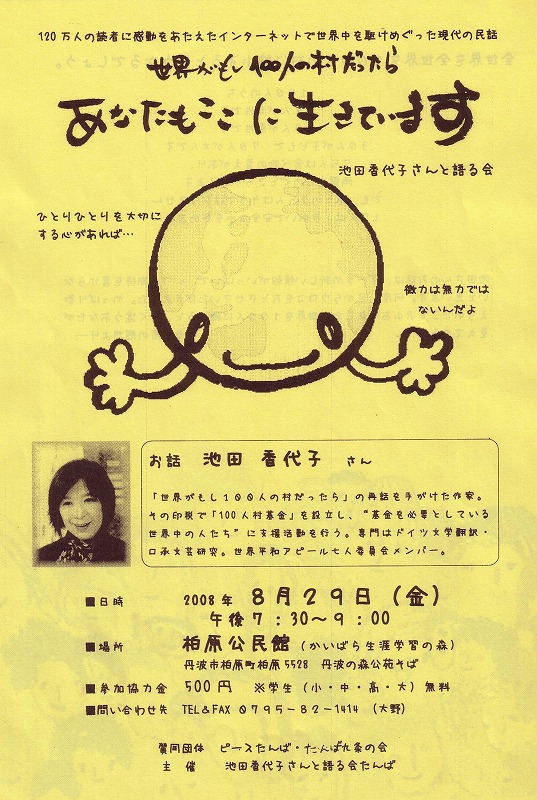 120万人の読者に感動をあたえたインターネットで世界中を駆けめぐった現代の民話
世界がもし100人の村だったら
あなたもここに生きています
池田香代子さんと語る会
ひとりひとりを大切に
する心があれば…
微力は無力では
ないんだよ
お話 池田 香代子 さん
「世界がもし100人の村だったら」の再話を手がけた作家。
その印税で「100人村基金」を設立し、“基金を必要としている
世界中の人たち”に支援活動を行う。専門はドイツ文学翻訳・
口承文芸研究。世界平和アピール七人委員会メンバー。
■日時 2008年 8月29日(金)
午後7:30~9:00
■場所 柏原公民館(かいばら生涯学習の森)
丹波市柏原町柏原5528 丹波の森公苑そば
■参加協力金 500円 ※学生(小・中・高・大)無料
■問い合わせ先 TEL&FAX 0795-82-1414 (大野)
賛同団体 ピースたんば・たんば九条の会
主 催 池田香代子さんと語る会たんば